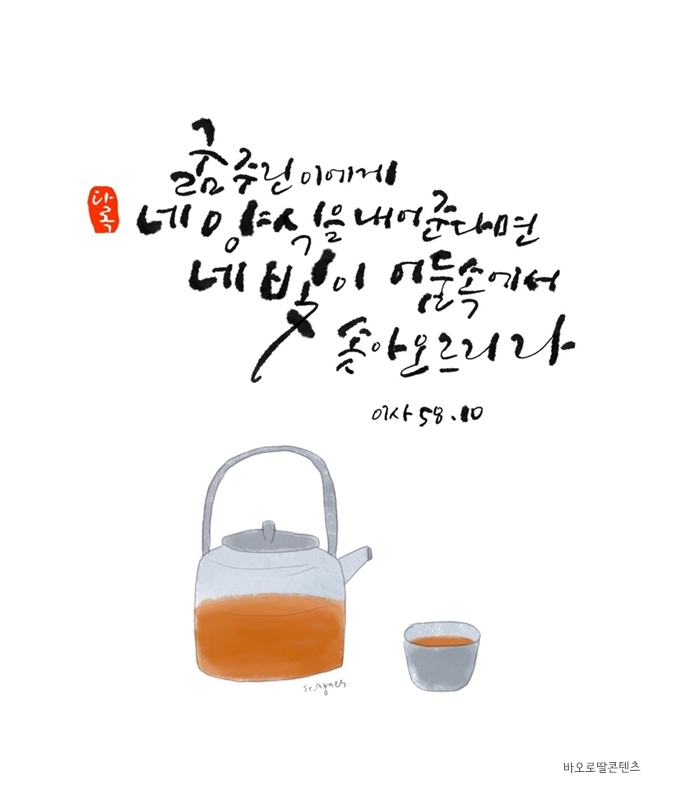 굶주린 이에게
다록
네 양식을 내어 준다면
네 빛이 어둠 속에서
솟아오르리라
이사 58.10
Sr. Agnes
바오로딸콘텐츠